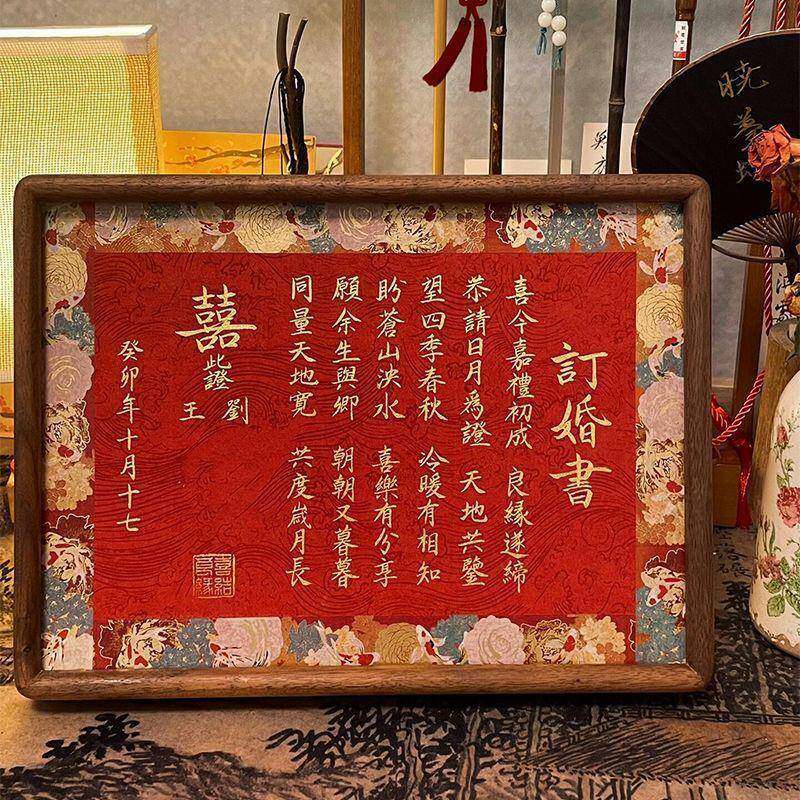 訂婚書
喜今嘉禮初成 良緣遂締
恭請日月爲證 天地共鑒
望四季春秋 冷暖有相知
盼蒼山泱水 喜樂有分享
願余生與卿 朝朝又暮暮
同量天地寬 共度歲月長
囍
此證
劉
王
癸卯年十月十七
喜結良緣
曉